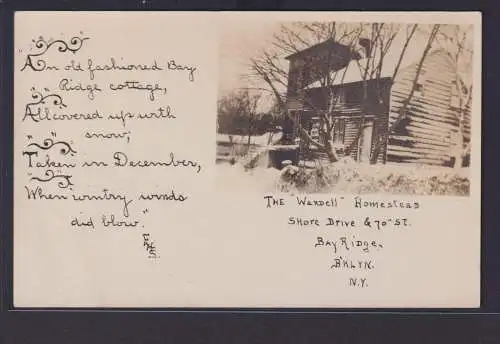 An old fashioned Bay
Ridge cottage,
All covered up with
snow;
Taken in December,
When wintry winds
did blow."
The "Wardell" Homestead
Shore Drive & 70" St.
Bay Ridge,
B'klyn.
N.Y.